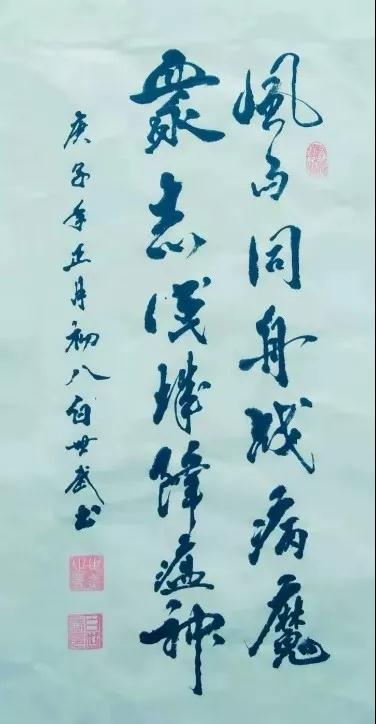 風雨同舟战病魔
衆志成城降瘟神
庚子年正月初八白世武书